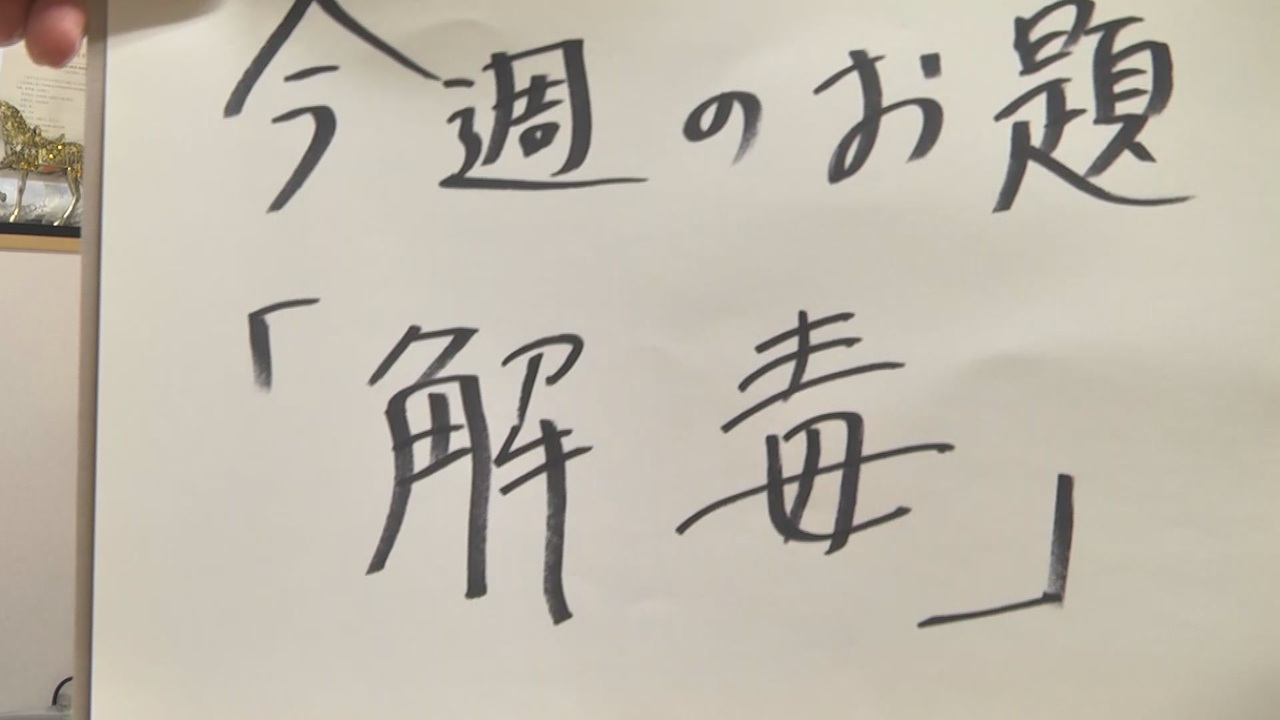 今週のお題
「解毒」